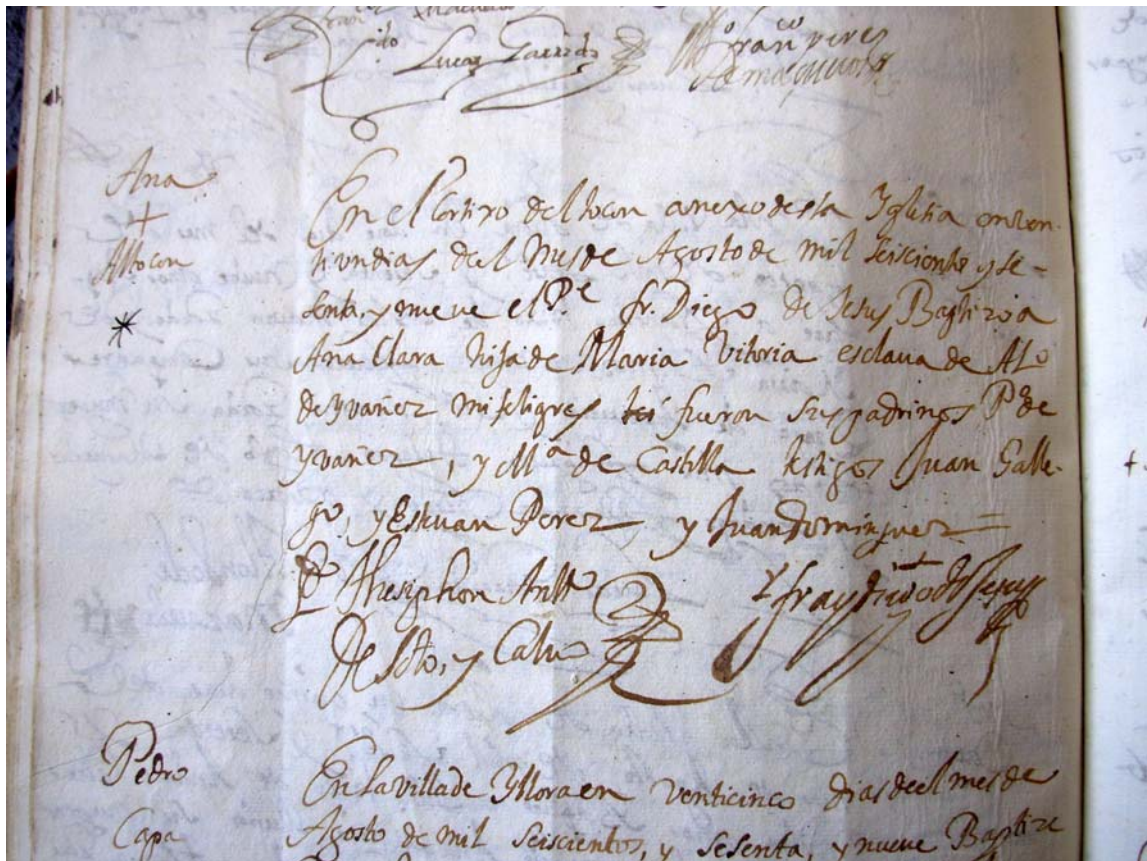 Lucas Garrido
Ana
+
Altocon
En el Cortixo del tocon anexo de esta Yglesia en ven-
tiun dias del Mes de Agosto de mil seiscientos y se-
senta, y nueve el Pe. fr. Diego de Jesus Baptizo a
Ana Clara hija de Maria Vitoria esclava de Alo
de yvañez mi feligres fueron sus padrinos Po de
yvañez, y Ma de Castilla testigos Juan Galle-
go, y Estevan Perez y Juan Dominguez =
Thesiphon Anto
De Soto, y Calvo
fray diego de Jesus
Pedro
Capa
En la villa de Yllora en venticinco dias de el mes de
Agosto de mil seiscientos, y sesenta, y nueve Baptize